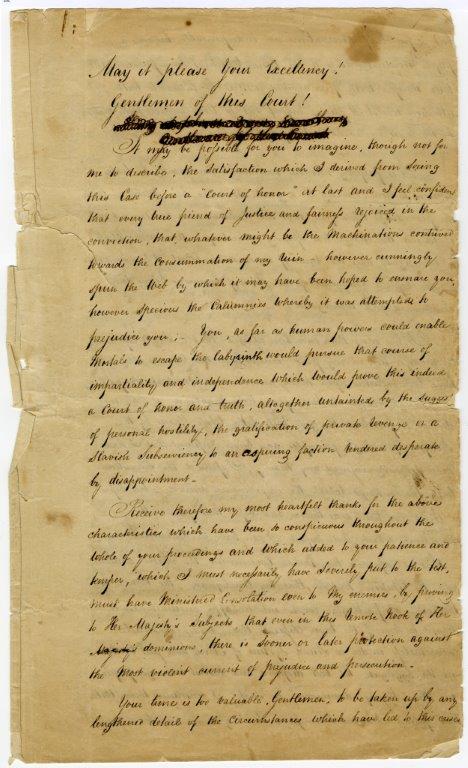 1.
May it please Your Excellency!
Gentlemen of this Court!
It may be possible for you to imagine, though not for
me to describe, the satisfaction which I derived from seeing
this Case before a "Court of honor" at last and I feel confident
that every true friend of Justice and fairness rejoiced in the
conviction, that, whatever might be the Machinations contrived
towards the Consummation of my Ruin – however cunningly
spun the Web by which it may have been hoped to ensnare you,
however specious the Calumnies whereby it was attempted to
prejudice you ;– You, as far as human powers could enable
Mortals to escape the labyrinth would pursue that course of
impartiality and independence which would prove this indeed
a Court of honor and truth, altogether untainted by the
of personal hostility, the gratification of private revenge or a
Slavish Subserviency to an aspiring faction rendered desperate
by disappointment –
Receive therefore my most heartfelt thanks for the above
characteristics which have been so conspicuous throughout the
whole of your proceedings and which added to your patience and
temper, which I must necessarily have severely put to the test,
must have Ministered Consolation even to My enemies, by proving
to Her Majesty's Subjects that even in this remote Nook of Her
Majesty's dominions, there is sooner or later protection against
the most violent current of prejudice and persecution –
Your time is too valuable, Gentlemen, to be taken up by any
lengthened detail of the Circumstances which have led to this crisis